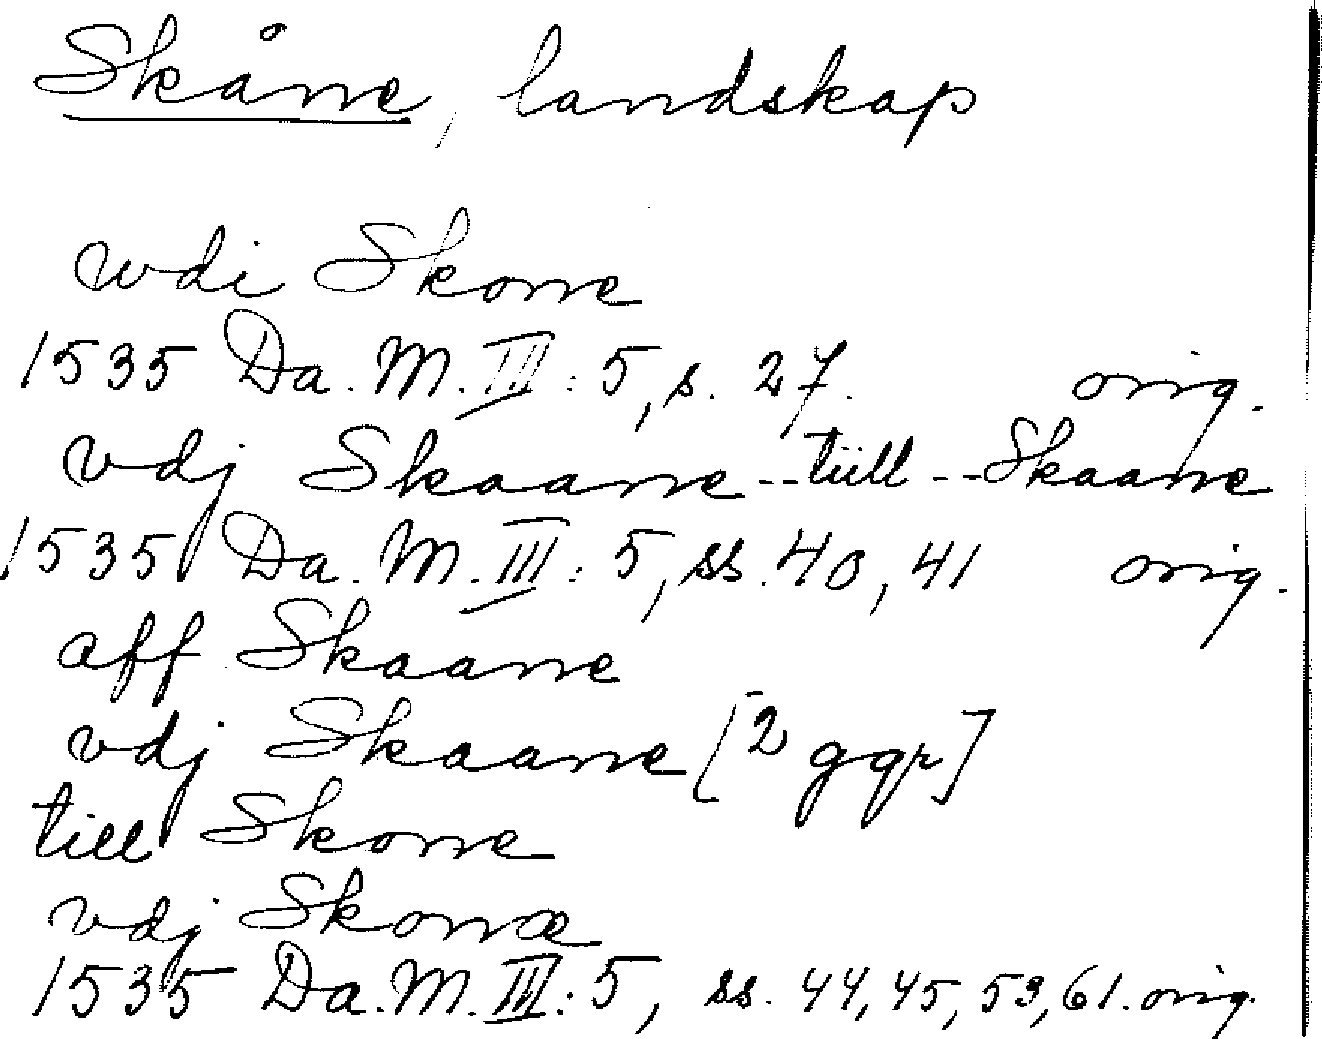 Skåne, landskap
wdi Skone
1535 Da. M. III: 5, s. 27. orig.
vdj Skaane -- tiill -- Skaane
1535 Da. M. III: 5, ss. 40, 41 orig.
aff Skaane
vdj Skaane [2 ggr]
till Skone
vdj Skonæ
1535 Da. M. III: 5, ss. 44, 45, 53, 61. orig.